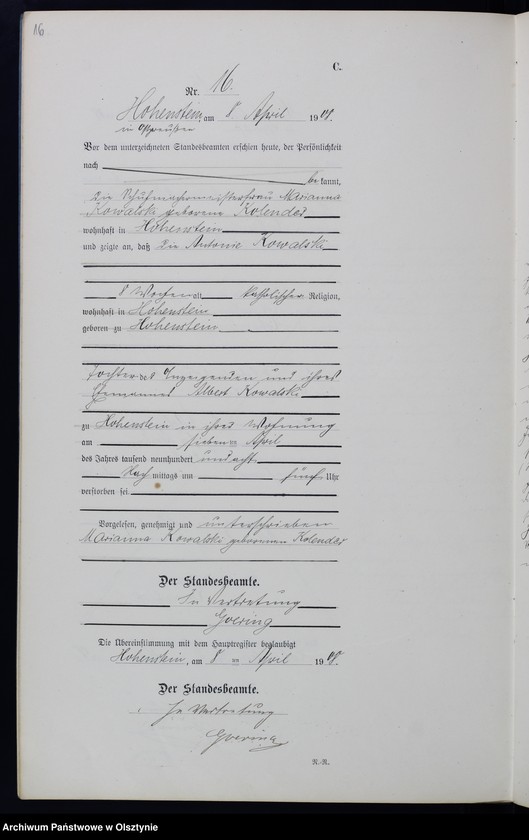 16
C.
Nr. 16.
Hohenstein, am 8 April 1908.
in Ostpreußen
Vor dem unterzeichneten Standesbeamten erschien heute, der Persönlichkeit
nach
bekannt,
die Schuhmachermeisterfrau Marianna
Kowalski geborene Kolender
wohnhaft in Hohenstein
und zeigte an, daß die Antonie Kowalski
8 Wochen alt katholischer Religion,
wohnhaft in Hohenstein
geboren zu Hohenstein
Tochter der Anzeigenden und ihres
Ehemannes Albert Kowalski
zu Hohenstein in ihrer Wohnung
am sieben ten April
des Jahres tausend neunhundert und acht
Nach mittags um fünf Uhr
verstorben sei
Vorgelesen, genehmigt und unterschrieben
Marianna Kowalski geborenen Kolender
Der Standesbeamte.
In Vertretung
Goering
Die Übereinstimmung mit dem Hauptregister beglaubigt
Hohenstein, am 8 ten April 1908.
Der Standesbeamte.
In Vertretung
Goering
R.-R.
Archiwum Państwowe w Olsztynie